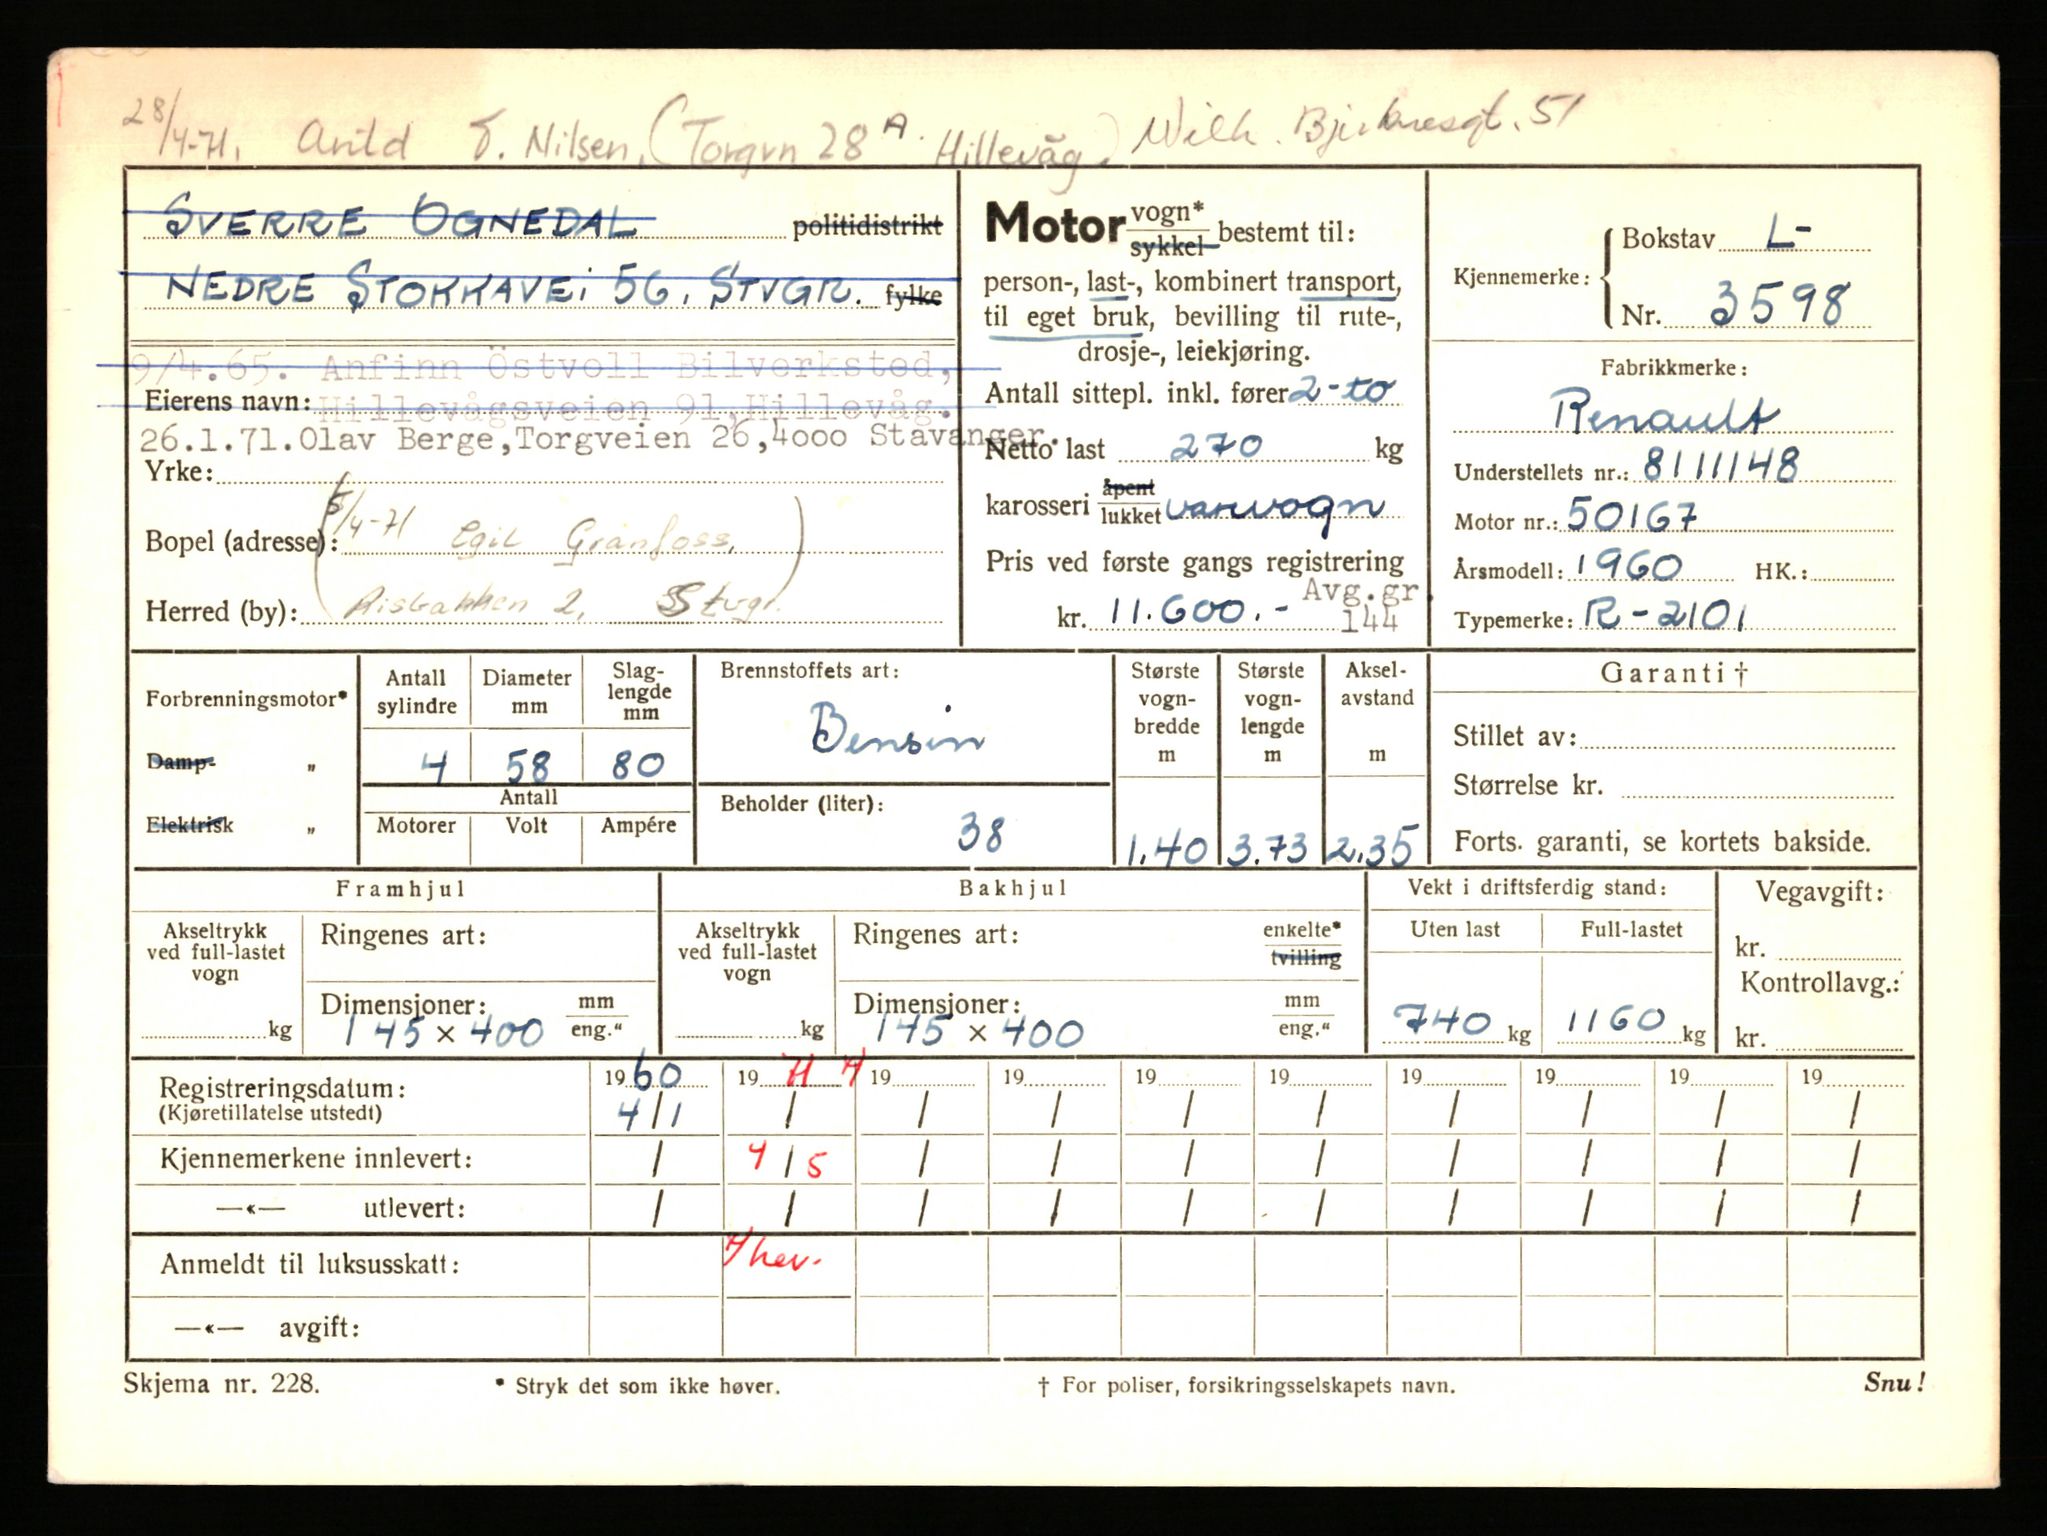 28/4-71. Arild T. Nilsen, (Torgvn 28 A. Hillevåg.) Wilh. Bjerknesgt. 51
SVERRE OGNEDAL politidistrikt
NEDRE STOKKAVEI 56, STVGR. fylke
9/4.65. Anfinn Östvoll Bilverksted,
Eierens navn: Hillevågsveien 91, Hillevåg.
26.1.71. Olav Berge, Torgveien 26, 4000 Stavanger.
Yrke:
Bopel (adresse): (5/4-71 Egil Granfoss,
Herred (by): Risbakken 2, Stvgr.)
Motor vogn* / sykkel bestemt til:
person-, last-, kombinert transport,
til eget bruk, bevilling til rute-,
drosje-, leiekjøring.
Antall sittepl. inkl. fører 2-to
Netto last 270 kg
karosseri åpent / lukket varevogn
Pris ved første gangs registrering
Avg.gr.
kr. 11.600.- 144
Kjennemerke: Bokstav L-
Nr. 3598
Fabrikkmerke:
Renault
Understellets nr.: 8111148
Motor nr.: 50167
Årsmodell: 1960 HK.:
Typemerke: R-2101
Forbrenningsmotor*
Damp- „
Elektrisk „
Antall sylindre Diameter mm Slaglengde mm
4 58 80
Antall
Motorer Volt Ampére
Brennstoffets art:
Bensin
Beholder (liter):
38
Største vognbredde m
1.40
Største vognlengde m
3.73
Akselavstand m
2.35
Garanti †
Stillet av:
Størrelse kr.
Forts. garanti, se kortets bakside.
Framhjul
Akseltrykk ved full-lastet vogn
kg
Ringenes art:
Dimensjoner: mm / eng."
145 x 400
Bakhjul
Akseltrykk ved full-lastet vogn
kg
Ringenes art: enkelte* / tvilling
Dimensjoner: mm / eng."
145 x 400
Vekt i driftsferdig stand:
Uten last Full-lastet
740 kg 1160 kg
Vegavgift:
kr.
Kontrollavg.:
kr.
Registreringsdatum: 1960 19 19 19 19 19 19 19 19 19
(Kjøretillatelse utstedt) 4/1 / / / / / / / / /
Kjennemerkene innlevert: / 4/5 / / / / / / / /
—«— utlevert: / / / / / / / / / /
Anmeldt til luksusskatt:
—«— avgift:
Skjema nr. 228. * Stryk det som ikke høver. † For poliser, forsikringsselskapets navn. Snu!